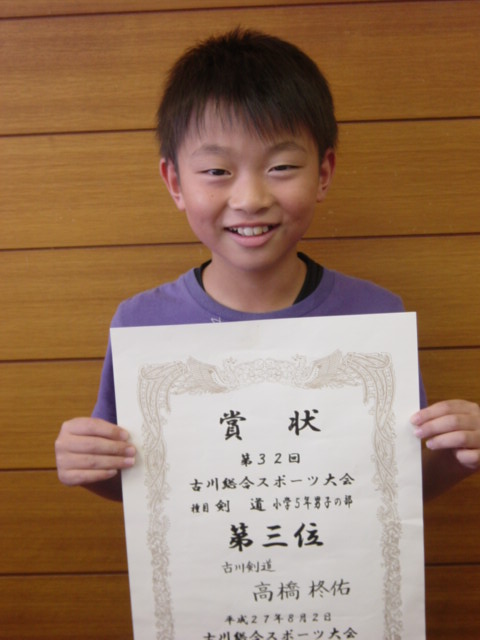 賞 状
第32回
古川総合スポーツ大会
種目 剣 道 小学5年男子の部
第三位
古川剣道
高橋柊佑
平成27年8月2日
古川総合スポーツ大会